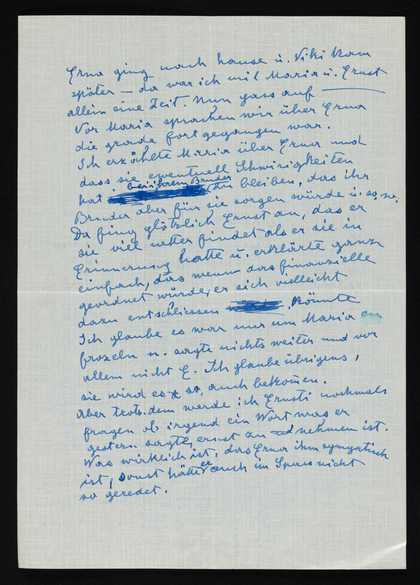 Erna ging nach hause u. Niki kam
später – da war ich mit Maria u. Ernst
allein eine Zeit. Nun pass auf
Vor Maria sprachen wir über Erna
die grade fortgegangen war.
Ich erzählte Maria über Erna und
dass sie eventuell Schwirigkeiten
bei ihrem Bruder
hat zu bleiben, das ihr
Bruder aber für sie sorgen würde u. so, so,
Da fing plötzlich Ernst an, das er
sie viel netter findet als er sie in
Erinnerung hatte u. erklärte ganz
einfach, das wenn das finanzielle
geordnet würde, er sich vielleicht
dazu entschliesen könnte
Ich glaube es war nur um Maria
frozeln u. sagte nichts weiter und vor
allem nicht E. Ich glaube übrigens,
sie wird es so, auch bekomen.
Aber trotsdem werde ich Ernsti nochmals
fragen ob irgend ein Wort was er
gestern sagte, ernst zu nehmen ist.
Was wirklich ist, das Erna ihm sympatisch
ist, sonst hätte er auch im Spass nicht
so geredet.